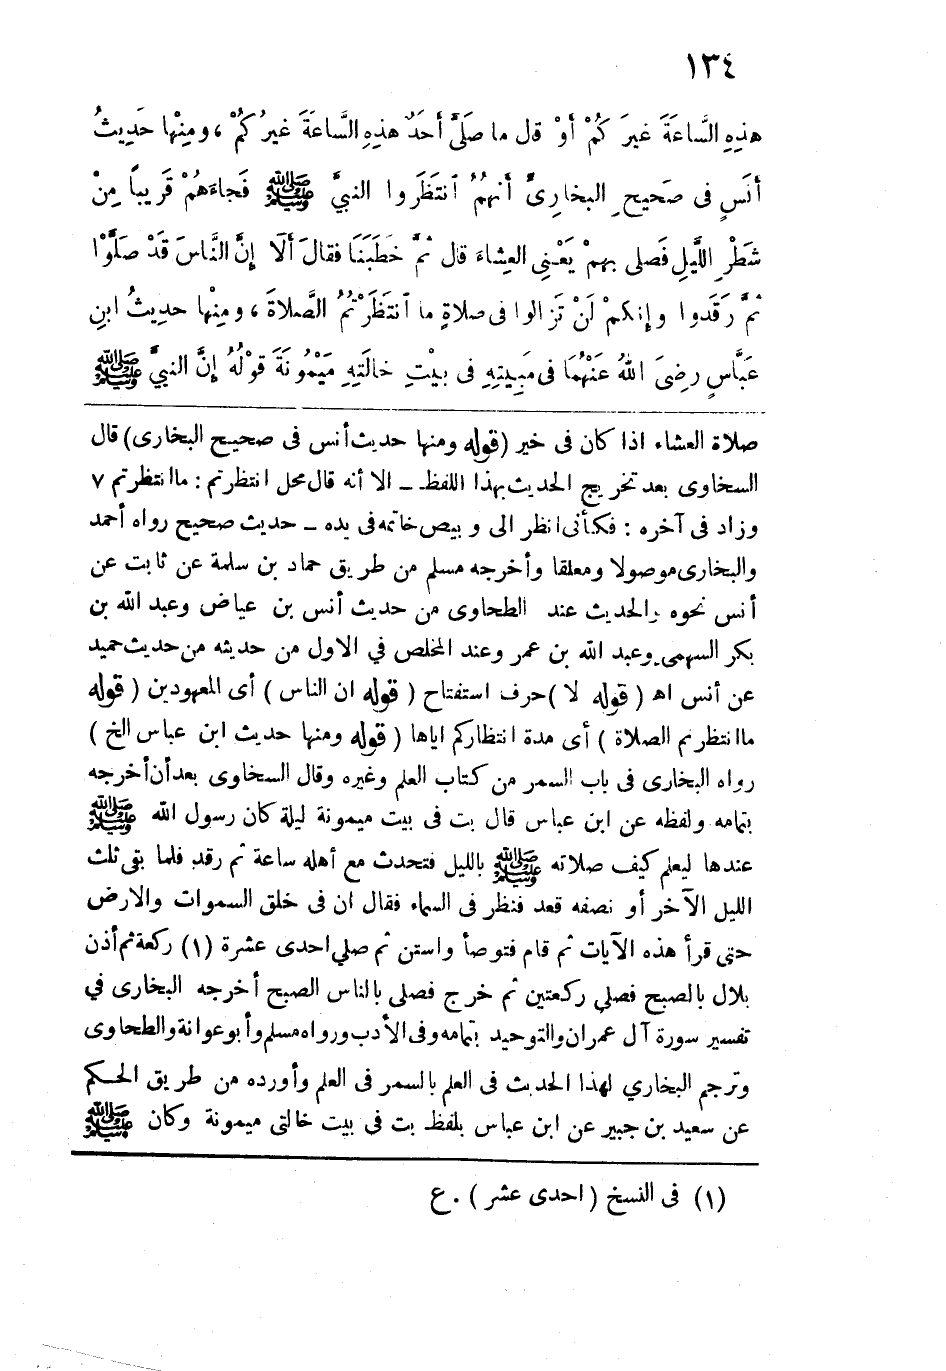 ١٣٤
هذِهِ السَّاعَةَ غيرَ كُمْ أوْ قل ما صَلَّى أحَدٌ هذِهِ السَّاعَةَ غيرُ كُمْ ، ومِنْها حَدِيثُ
أنَسٍ فى صَحيحِ البخارِىِّ أنهُمُ أنتَظَروا النبىَّ ﷺ فَجاءَهُمْ قَرِيباً مِنْ
شَطْرِ اللَّيلِ فَصلى بهمْ يَعْنِى العِشاءَ قال ثمَّ خَطَبَنَا فقالَ ألَا إنَّ النَّاسَ قَدْ صَلَّوْا
ثمَّ رَقَدوا وإنكمْ لَنْ تَزالوا فى صلاةٍ ما أنتَظَرْتمُ الصَّلاةَ ، ومِنْها حديثُ ابنِ
عَبَّاسٍ رضِىَ اللهُ عَنْهُما فى مَبِيتِهِ فى بيْتِ خالَتِهِ مَيْمُونَةَ قوْلُهُ إنَّ النبىَّ ﷺ
صلاة العشاء اذا كان فى خير (قوله ومنها حديث أنس فى صحيح البخارى) قال
السخاوى بعد تخريج الحديث بهذا اللفظ ــ الا أنه قال محل انتظرتم : ماانتظرتم ٧
وزاد فى آخره : فكأنى انظر الى وبيص خاتمه فى يده ــ حديث صحيح رواه أحمد
والبخارى موصولا ومعلقا وأخرجه مسلم من طريق حماد بن سلمة عن ثابت عن
أنس نحوه والحديث عند الطحاوى من حديث أنس بن عياض وعبد الله بن
بكر السهمى وعبد الله بن عمر وعند المخلص في الاول من حديثه من حديث حميد
عن أنس اه ( قوله لا ) حرف استفتاح ( قوله ان الناس ) أى المعهودين ( قوله
ماانتظرتم الصلاة ) أى مدة انتظاركم اياها ( قوله ومنها حديث ابن عباس الخ )
رواه البخارى فى باب السمر من كتاب العلم وغيره وقال السخاوى بعد أن أخرجه
بتمامه ولفظه عن ابن عباس قال بت فى بيت ميمونة ليلة كان رسول الله ﷺ
عندها ليعلم كيف صلاته ﷺ بالليل فتحدث مع أهله ساعة ثم رقد فلما بقى ثلث
الليل الآخر أو نصفه قعد فنظر فى السماء فقال ان فى خلق السموات والارض
حتى قرأ هذه الآيات ثم قام فتوضأ واستن ثم صلى احدى عشرة (١) ركعة ثم أذن
بلال بالصبح فصلى ركعتين ثم خرج فصلى بالناس الصبح أخرجه البخارى في
تفسير سورة آل عمران والتوحيد بتمامه وفى الأدب ورواه مسلم وأبو عوانة والطحاوى
وترجم البخاري لهذا الحديث فى العلم بالسمر فى العلم وأورده من طريق الحكم
عن سعيد بن جبير عن ابن عباس بلفظ بت فى بيت خالتى ميمونة وكان ﷺ
(١) فى النسخ ( احدى عشر ) . ع